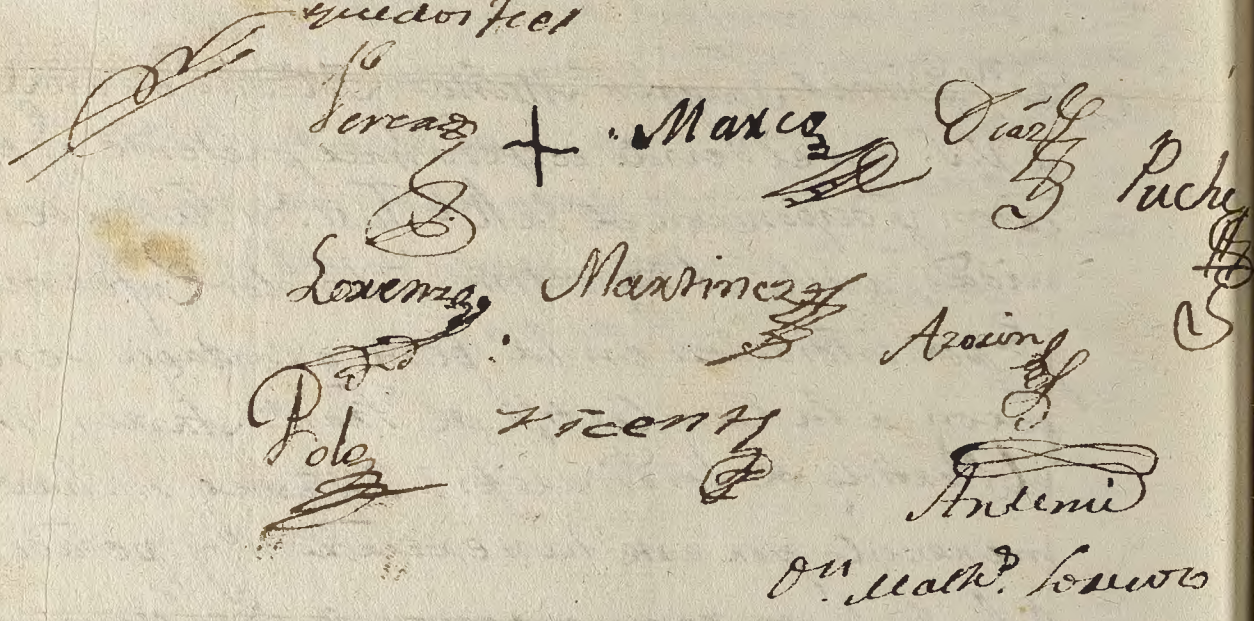 Perea + Marco Diaz Puche
Lorenzo Martinez Azorin
Polo Vicent
Antemi
Dn. Math.º